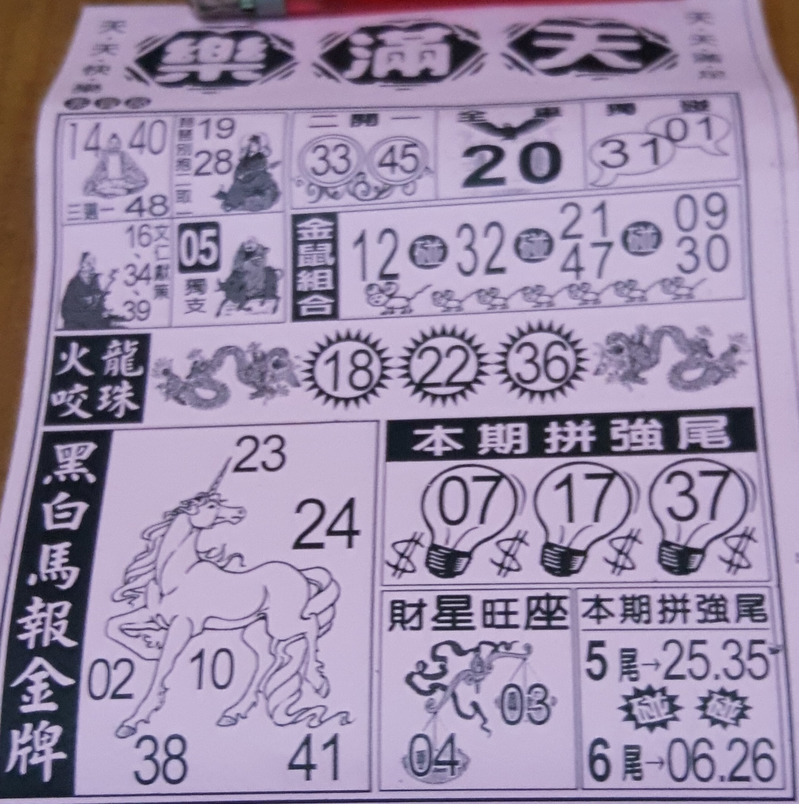 樂滿天
天天快樂
14 40
三選一 48
琵琶別抱二取一
19
28
二開一
33 45
全車
20
獨碰
31 01
16、34、39
文仁獻策
05
獨支
金鼠組合
12 碰 32 碰 21 47 碰 09 30
火龍咬珠
18 22 36
黑白馬報金牌
23
24
02 10
38 41
本期拼強尾
07 17 37
$ $ $ $
財星旺座
03
04
本期拼強尾
5尾→25.35
碰 碰
6尾→06.26